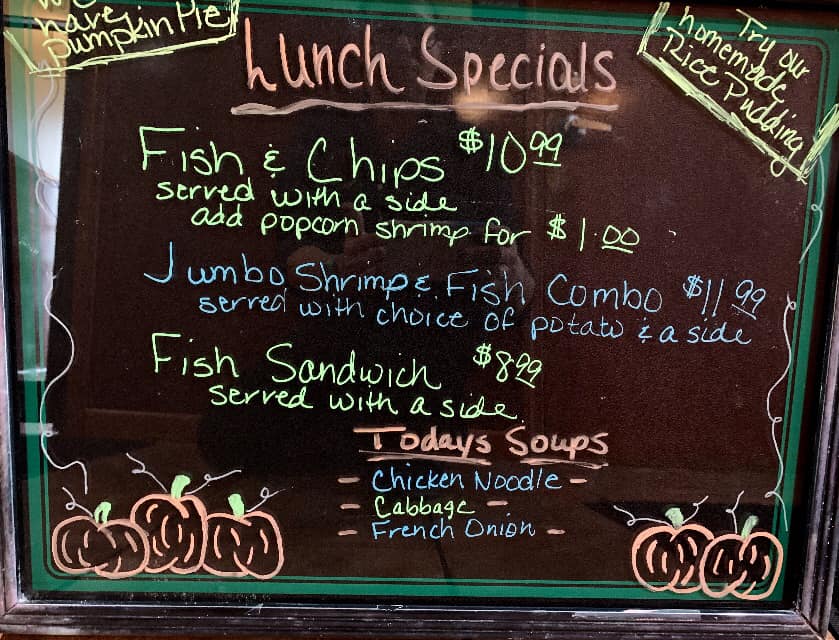 have
pumpkin Pie
Try our
homemade
Rice Pudding
Lunch Specials
Fish & Chips $10.99
served with a side
add popcorn shrimp for $1.00
Jumbo Shrimp & Fish Combo $11.99
served with choice of potato & a side
Fish Sandwich $8.99
served with a side
Todays Soups
- Chicken Noodle -
- Cabbage -
- French Onion -